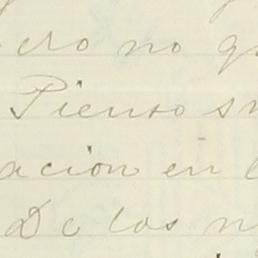 ero no q
Pienso s
ación en l
De los n